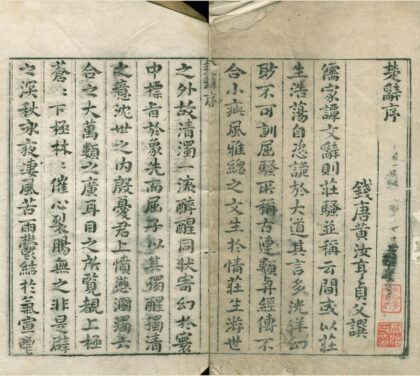 楚辭序
錢唐黃汝亨貞父譔
儒家譚文辭則莊騷並稱云間或以莊
生浩蕩自恣詭於大道其言多洸洋幻
眇不可訓屈騷稱古連類經傳不
合小疵風雅總之文生於情莊生游世
楚辭序
之外故清濁一流醉醒同狀寄幻於寰
中標旨於象先而屈子以其獨醒獨清
之意沈世之內殷憂君上憤懣溷濁六
合之大萬類之廣耳目之所覽覩上極
蒼〻下極林〻催心裂腸無之非是辟
之深秋永夜淒風苦雨鬱結於氣宣鬯